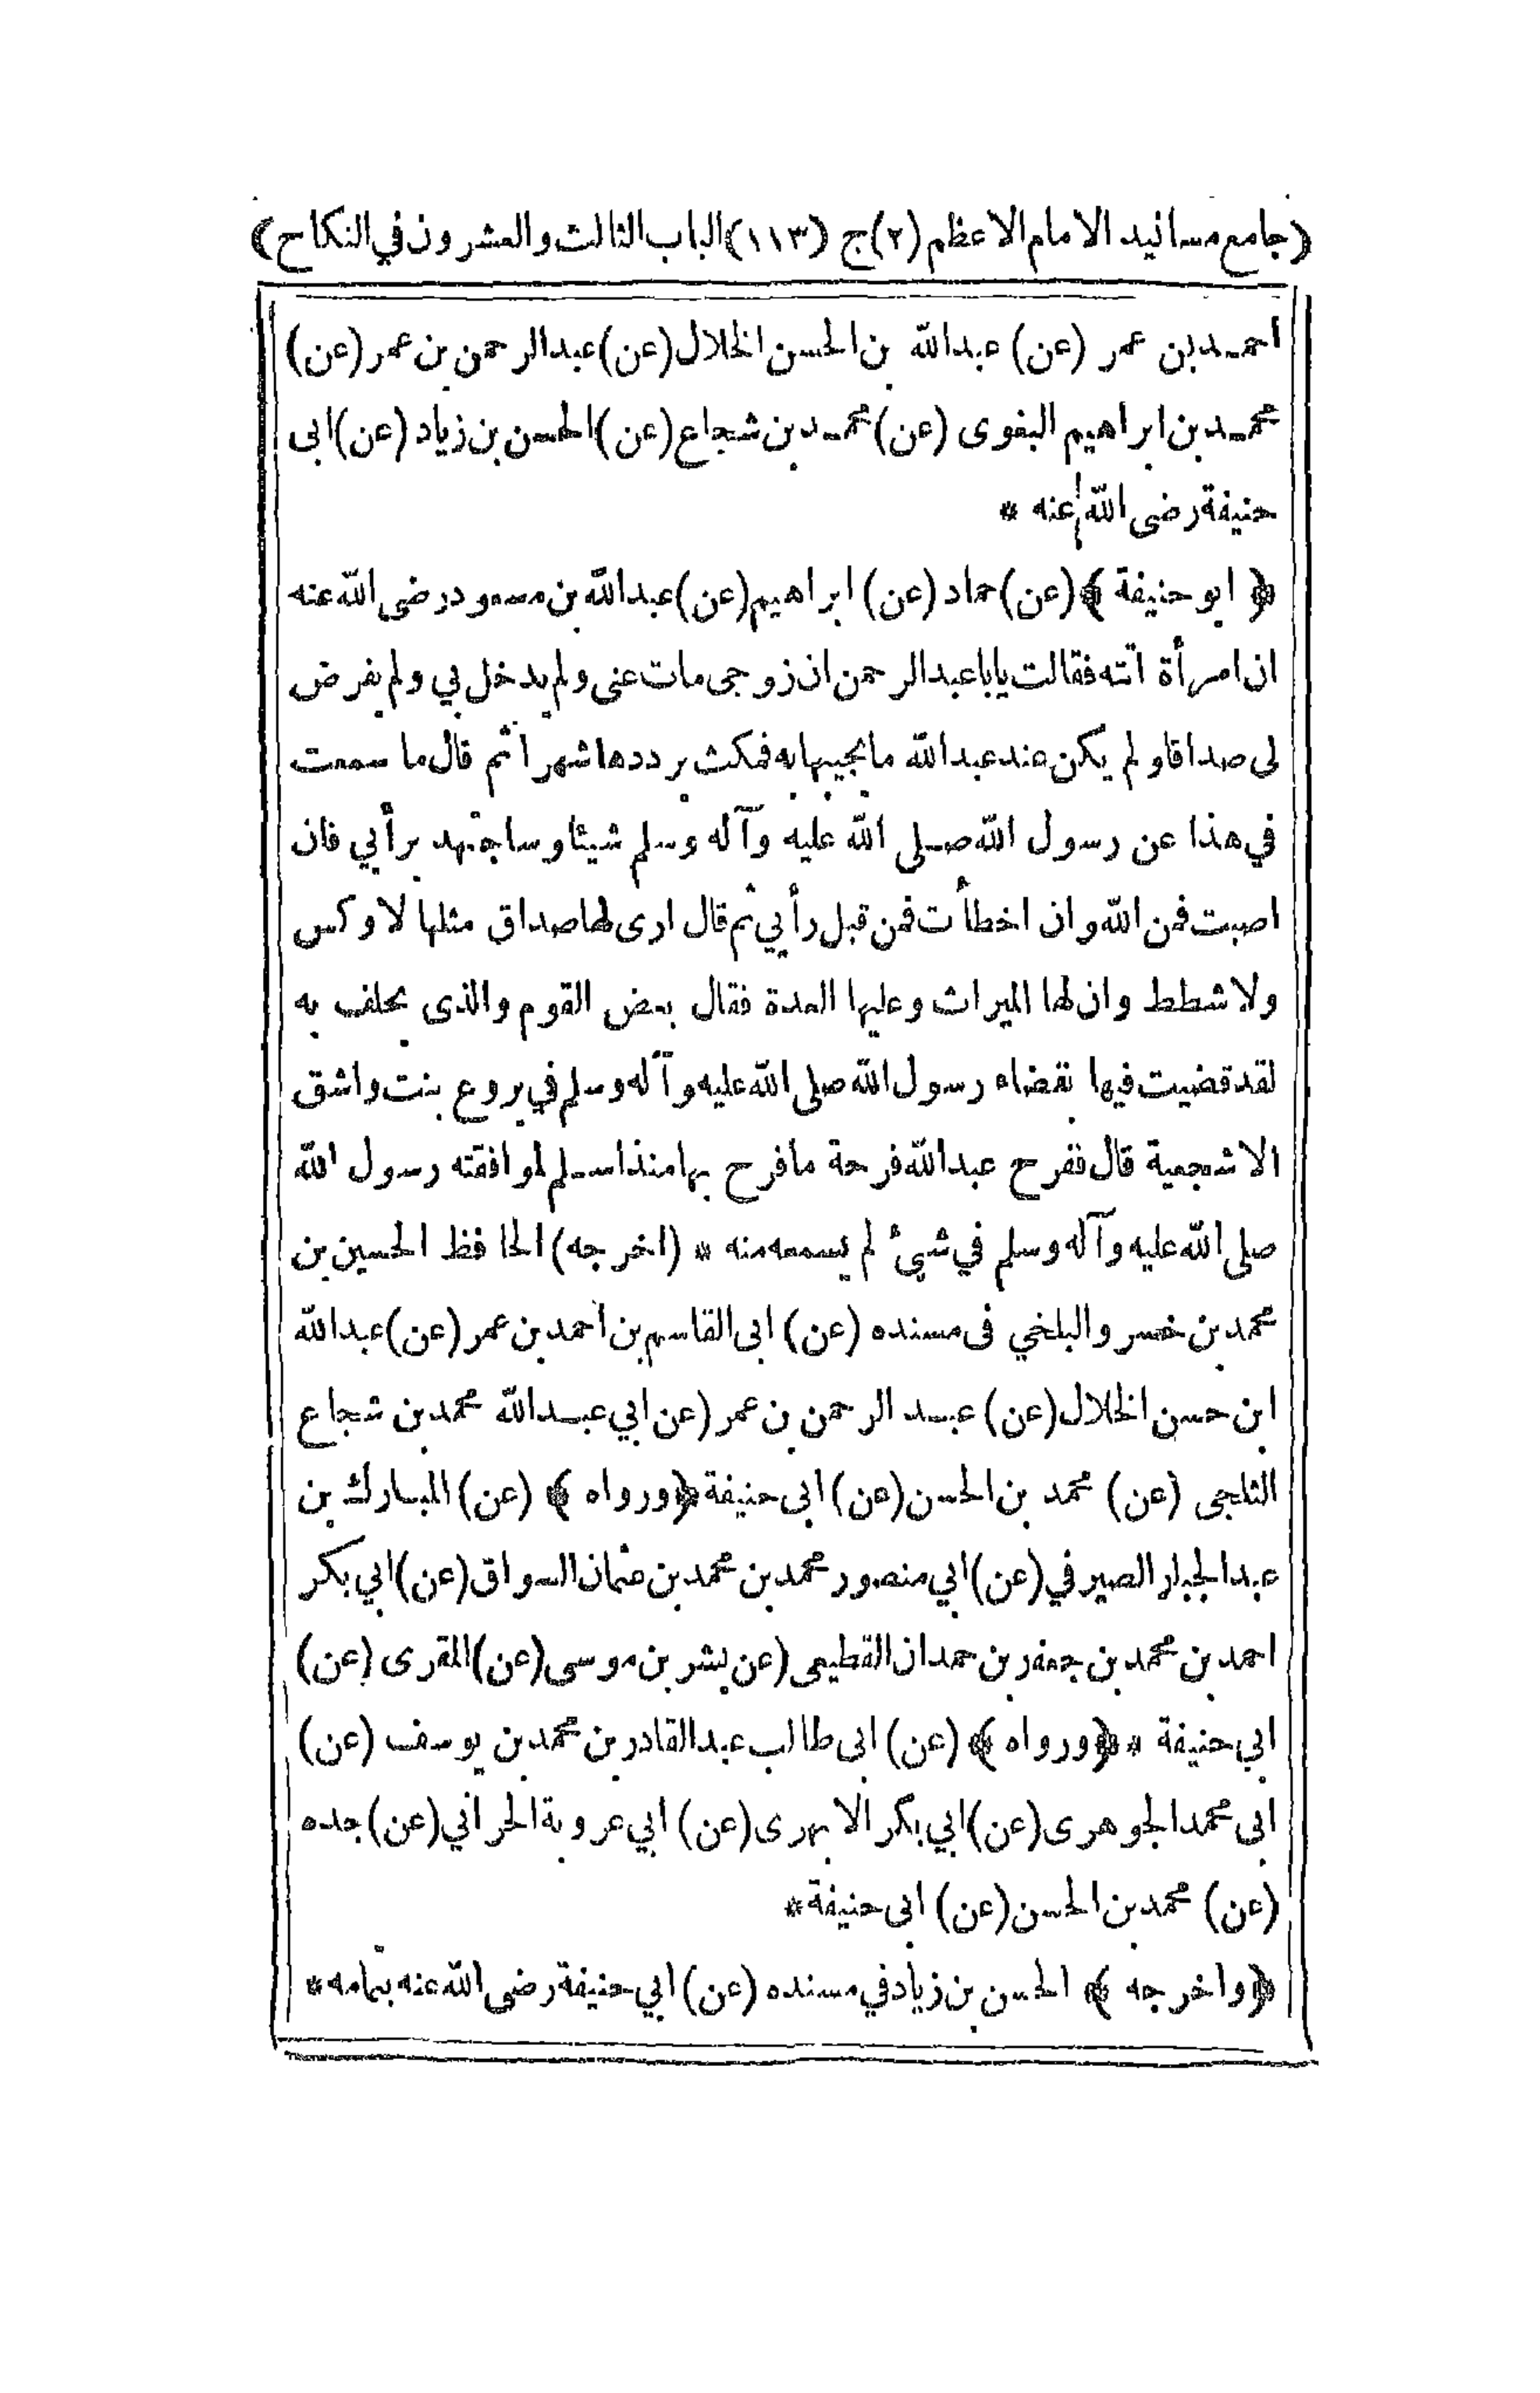 (جامع مسانيد الامام الاعظم (٢) ج (١١٣) الباب الثالث والعشرون في النكاح)
احمد بن عمر (عن) عبدالله بن الحسن الخلال (عن) عبدالرحمن بن عمر (عن)
محمد بن ابراهيم البغوى (عن) محمد بن شجاع (عن) الحسن بن زياد (عن) ابى
حنيفة رضى الله عنه *
﴿ ابو حنيفة ﴾ (عن) حماد (عن) ابراهيم (عن) عبدالله بن مسعود رضى الله عنه
ان امرأة اتته فقالت يابا عبدالرحمن ان زوجى مات عنى ولم يدخل بي ولم يفرض
لى صداقا ولم يكن عند عبدالله ما يجيبها به فمكث يرددها شهرا ثم قال ما سمعت
في هذا عن رسول الله صلى الله عليه وآله وسلم شيئا وساجتهد برأيي فان
اصبت فمن الله وان اخطأت فمن قبل رأيي ثم قال ارى لها صداق مثلها لا وكس
ولا شطط وان لها الميراث وعليها العدة فقال بعض القوم والذى يحلف به
لقد قضيت فيها بقضاء رسول الله صلى الله عليه وآله وسلم في بروع بنت واشق
الاشجعية قال ففرح عبدالله فرحة ما فرح بها منذ اسلم لموافقته رسول الله
صلى الله عليه وآله وسلم في شيئ لم يسمعه منه * (اخرجه) الحافظ الحسين بن
محمد بن خسرو البلخي فى مسنده (عن) ابى القاسم بن احمد بن عمر (عن) عبدالله
ابن حسن الخلال (عن) عبد الرحمن بن عمر (عن ابي عبدالله محمد بن شجاع
الثلجى (عن) محمد بن الحسن (عن) ابى حنيفة ﴿ورواه ﴾ (عن) المبارك بن
عبدالجبار الصيرفي (عن) ابي منصور محمد بن محمد بن عثمان السواق (عن) ابي بكر
احمد بن محمد بن جعفر بن حمدان القطيعى (عن بشر بن موسى (عن) المقرى (عن)
ابي حنيفة * ﴿ورواه ﴾ (عن) ابى طالب عبدالقادر بن محمد بن يوسف (عن)
ابى محمد الجوهرى (عن) ابي بكر الابهرى (عن) ابي عروبة الحراني (عن) جده
(عن) محمد بن الحسن (عن) ابى حنيفة *
﴿واخرجه ﴾ الحسن بن زياد في مسنده (عن) ابي حنيفة رضى الله عنه بتمامه *